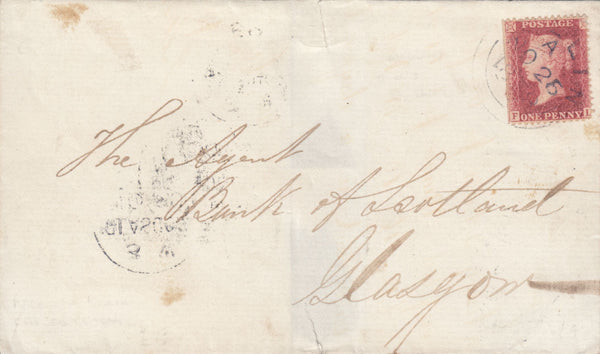 POSTAGE
ONE PENNY
The Agent
Bank of Scotland
Glasgow
GLASGOW